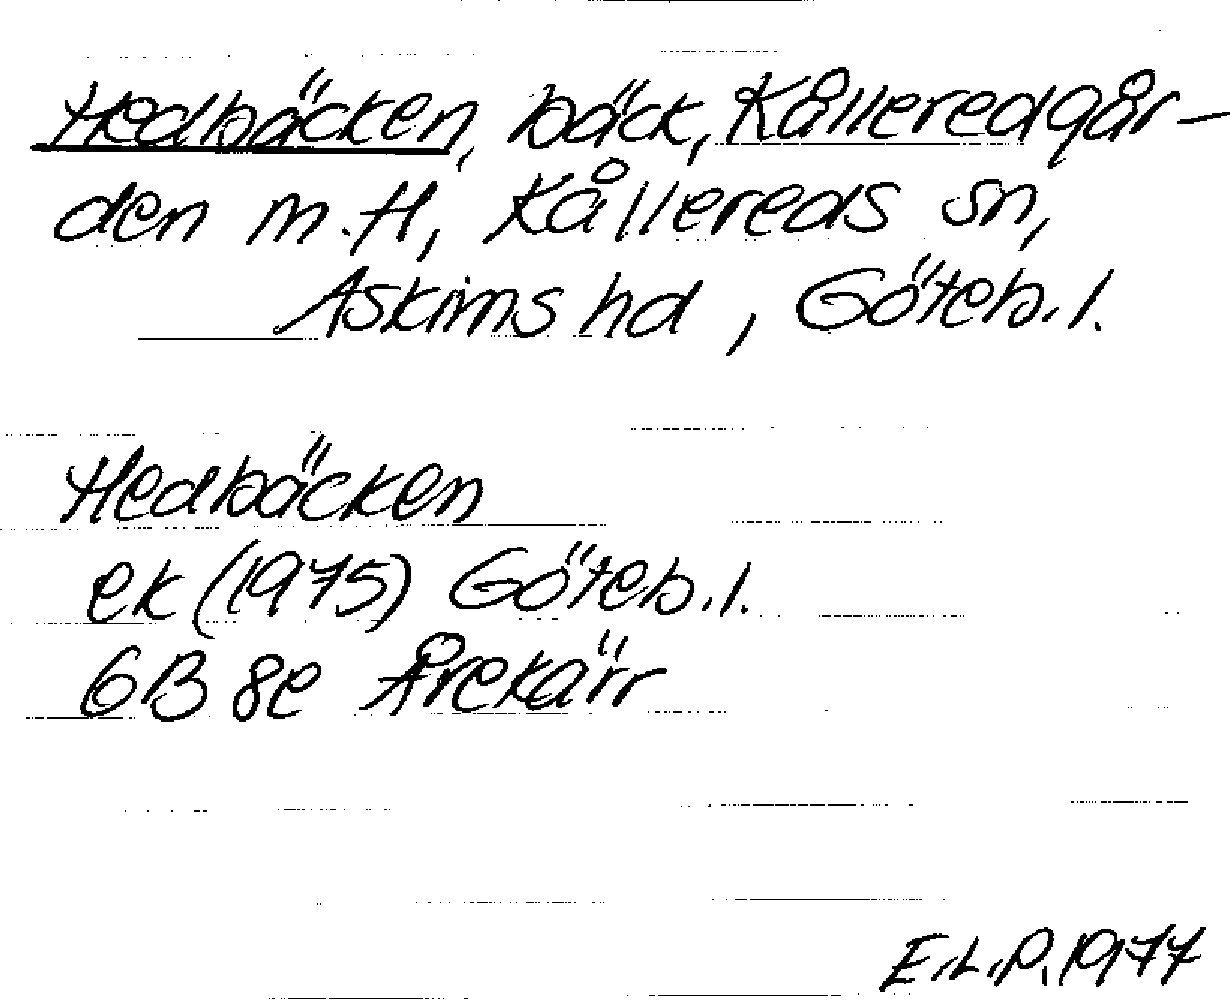 Hedbäcken, bäck, Kålleredgår-
den m.fl, Kållereds sn,
Askims hd, Göteb.l.
Hedbäcken
ek (1975) Göteb.l.
6B 8e Årekärr
E.L.P. 1977